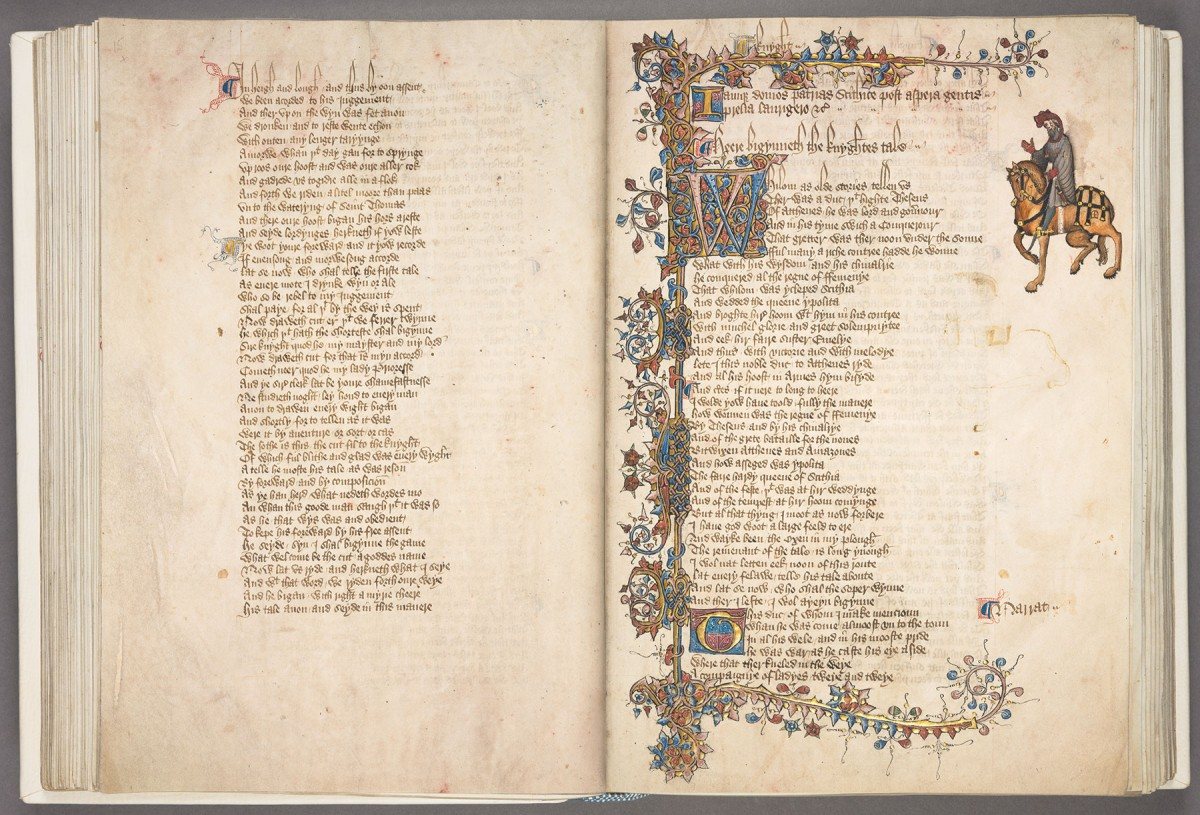 In heigh and lough and thus by oon assent
We been acorded to his Juggement
And ther vp on the wyn was fet anon
We dronken and to reste wente echon
With outen any lenger taryynge
Amorwe whan yͭ day gan for to sprynge
vp roos oure hoost and was oure aller cok
And gadrede vs togidre alle in a flok
And forth we riden a litel moore than paas
vn to the wateryng of Seint Thomas
And there oure hoost bigan his hors areste
And seyde lordynges herkneth if yow leste
Ye woot youre foreward and it yow recorde
If euensong and morwesong acorde
Lat se now who shal telle the firste tale
As euere mote I drynke wyn or ale
Who so be rebel to my Juggement
Shal paye for al yͭ by the wey is spent
Now draweth cut er yͭ we ferrer twynne
he which yͭ hath the shorteste shal bigynne
Sire knyght quod he my mayster and my lord
Now draweth cut for that is myn acord
Cometh neer quod he my lady Prioresse
And ye sire clerk lat be youre shamefastnesse
Ne studieth noght ley hond to euery man
Anon to drawen euery wight bigan
And shortly for to tellen as it was
Were it by auenture or sort or cas
The sothe is this the cut fil to the knyght
Of which ful blithe and glad was euery wyght
And telle he moste his tale as was reson
By foreward and by composicion
As ye han herd what nedeth wordes mo
And whan this goode man saugh yͭ it was so
As he that wys was and obedient
To kepe his foreward by his free assent
he seyde syn I shal bigynne the game
What wel come be the cut a goddes name
Now lat vs ryde and herkneth what I seye
And wͭ that word we ryden forth oure weye
And he bigan with right a myrie cheere
his tale anon and seyde in this manere
Knyght
Iamque domos patrias Scithice post aspera gentis
prelia laurigero &c
heere bigynneth the knyghtes tale
Whilom as olde stories tellen vs
Ther was a duc yͭ highte Theseus
Of Atthenes he was lord and gouernour
And in his tyme swich a Conquerour
That gretter was ther noon vnder the sonne
fful many a riche contree hadde he wonne
What with his wysdom and his chiualrie
he conquered al the regne of ffemenye
That whilom was ycleped Scithia
And wedded the queene ypolita
And broghte hir hoom wͭ hym in his contree
With muchel glorie and greet solempnytee
And eek hir faire suster Emelye
And thus with victorie and with melodye
Lete I this noble duc to Atthenes ryde
And al his hoost in Armes hym bisyde
And certes if it nere to long to heere
I wolde yow haue toold fully the manere
how wonnen was the regne of ffemenye
By Theseus and by his chiualrye
And of the grete bataille for the nones
Bitwixen Atthenes and Amazones
And how asseged was ypolita
The faire hardy queene of Scithia
And of the feste yͭ was at hir weddynge
And of the tempest at hir hoom comynge
But al that thyng I moot as now forbere
I haue god woot a large feeld to ere
And wayke been the oxen in my plough
The remenant of the tale is long ynough
I wol nat letten eek noon of this route
Lat euery felawe telle his tale aboute
And lat se now who shal the soper wynne
And ther I lefte I wol ayeyn bigynne
This duc of whom I make mencioun
Narrat
Whan he was come almoost vn to the toun
In al his wele and in his mooste pride
he was war as he caste his eye aside
Where that ther kneled in the weye
A compaignye of ladyes tweye and tweye